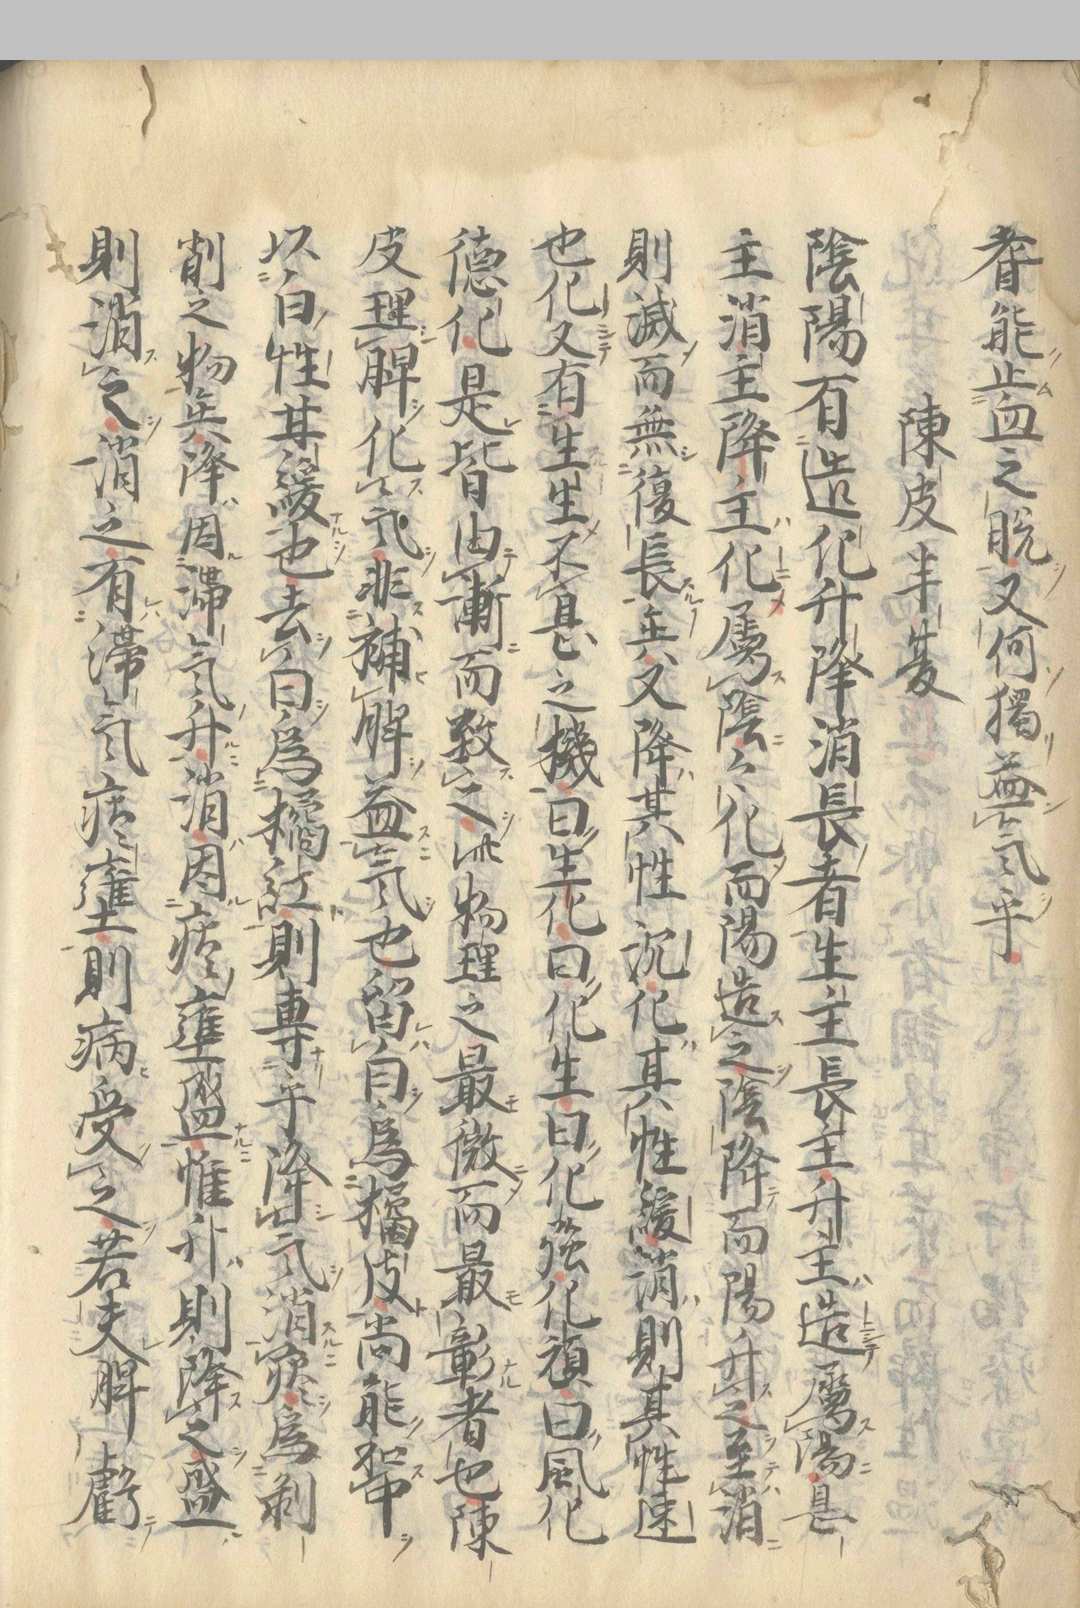 耆能止血之脱又何獨益气乎
陳皮半夏
陰陽有造化升降消長者生主長主升主造屬陽是
主消主降主化屬陰々化而陽造之陰降而陽升之至消
則滅而無復長矣又降其性沉化其性緩消則其性速
也化又有生生不甚之機曰生化曰化生曰化強化頑曰風化
德化是皆由漸而致之此物理之最微而最彰者也陳
皮理脾化气非補脾益气也留白為橘皮尚能和中
以白性其緩也去白為橘紅則專乎降气消痰為剥
削之物矣降因滞气升消因痰壅盛惟升則降之盛
則消之消之有滞气痰壅則病受之若夫脾虧